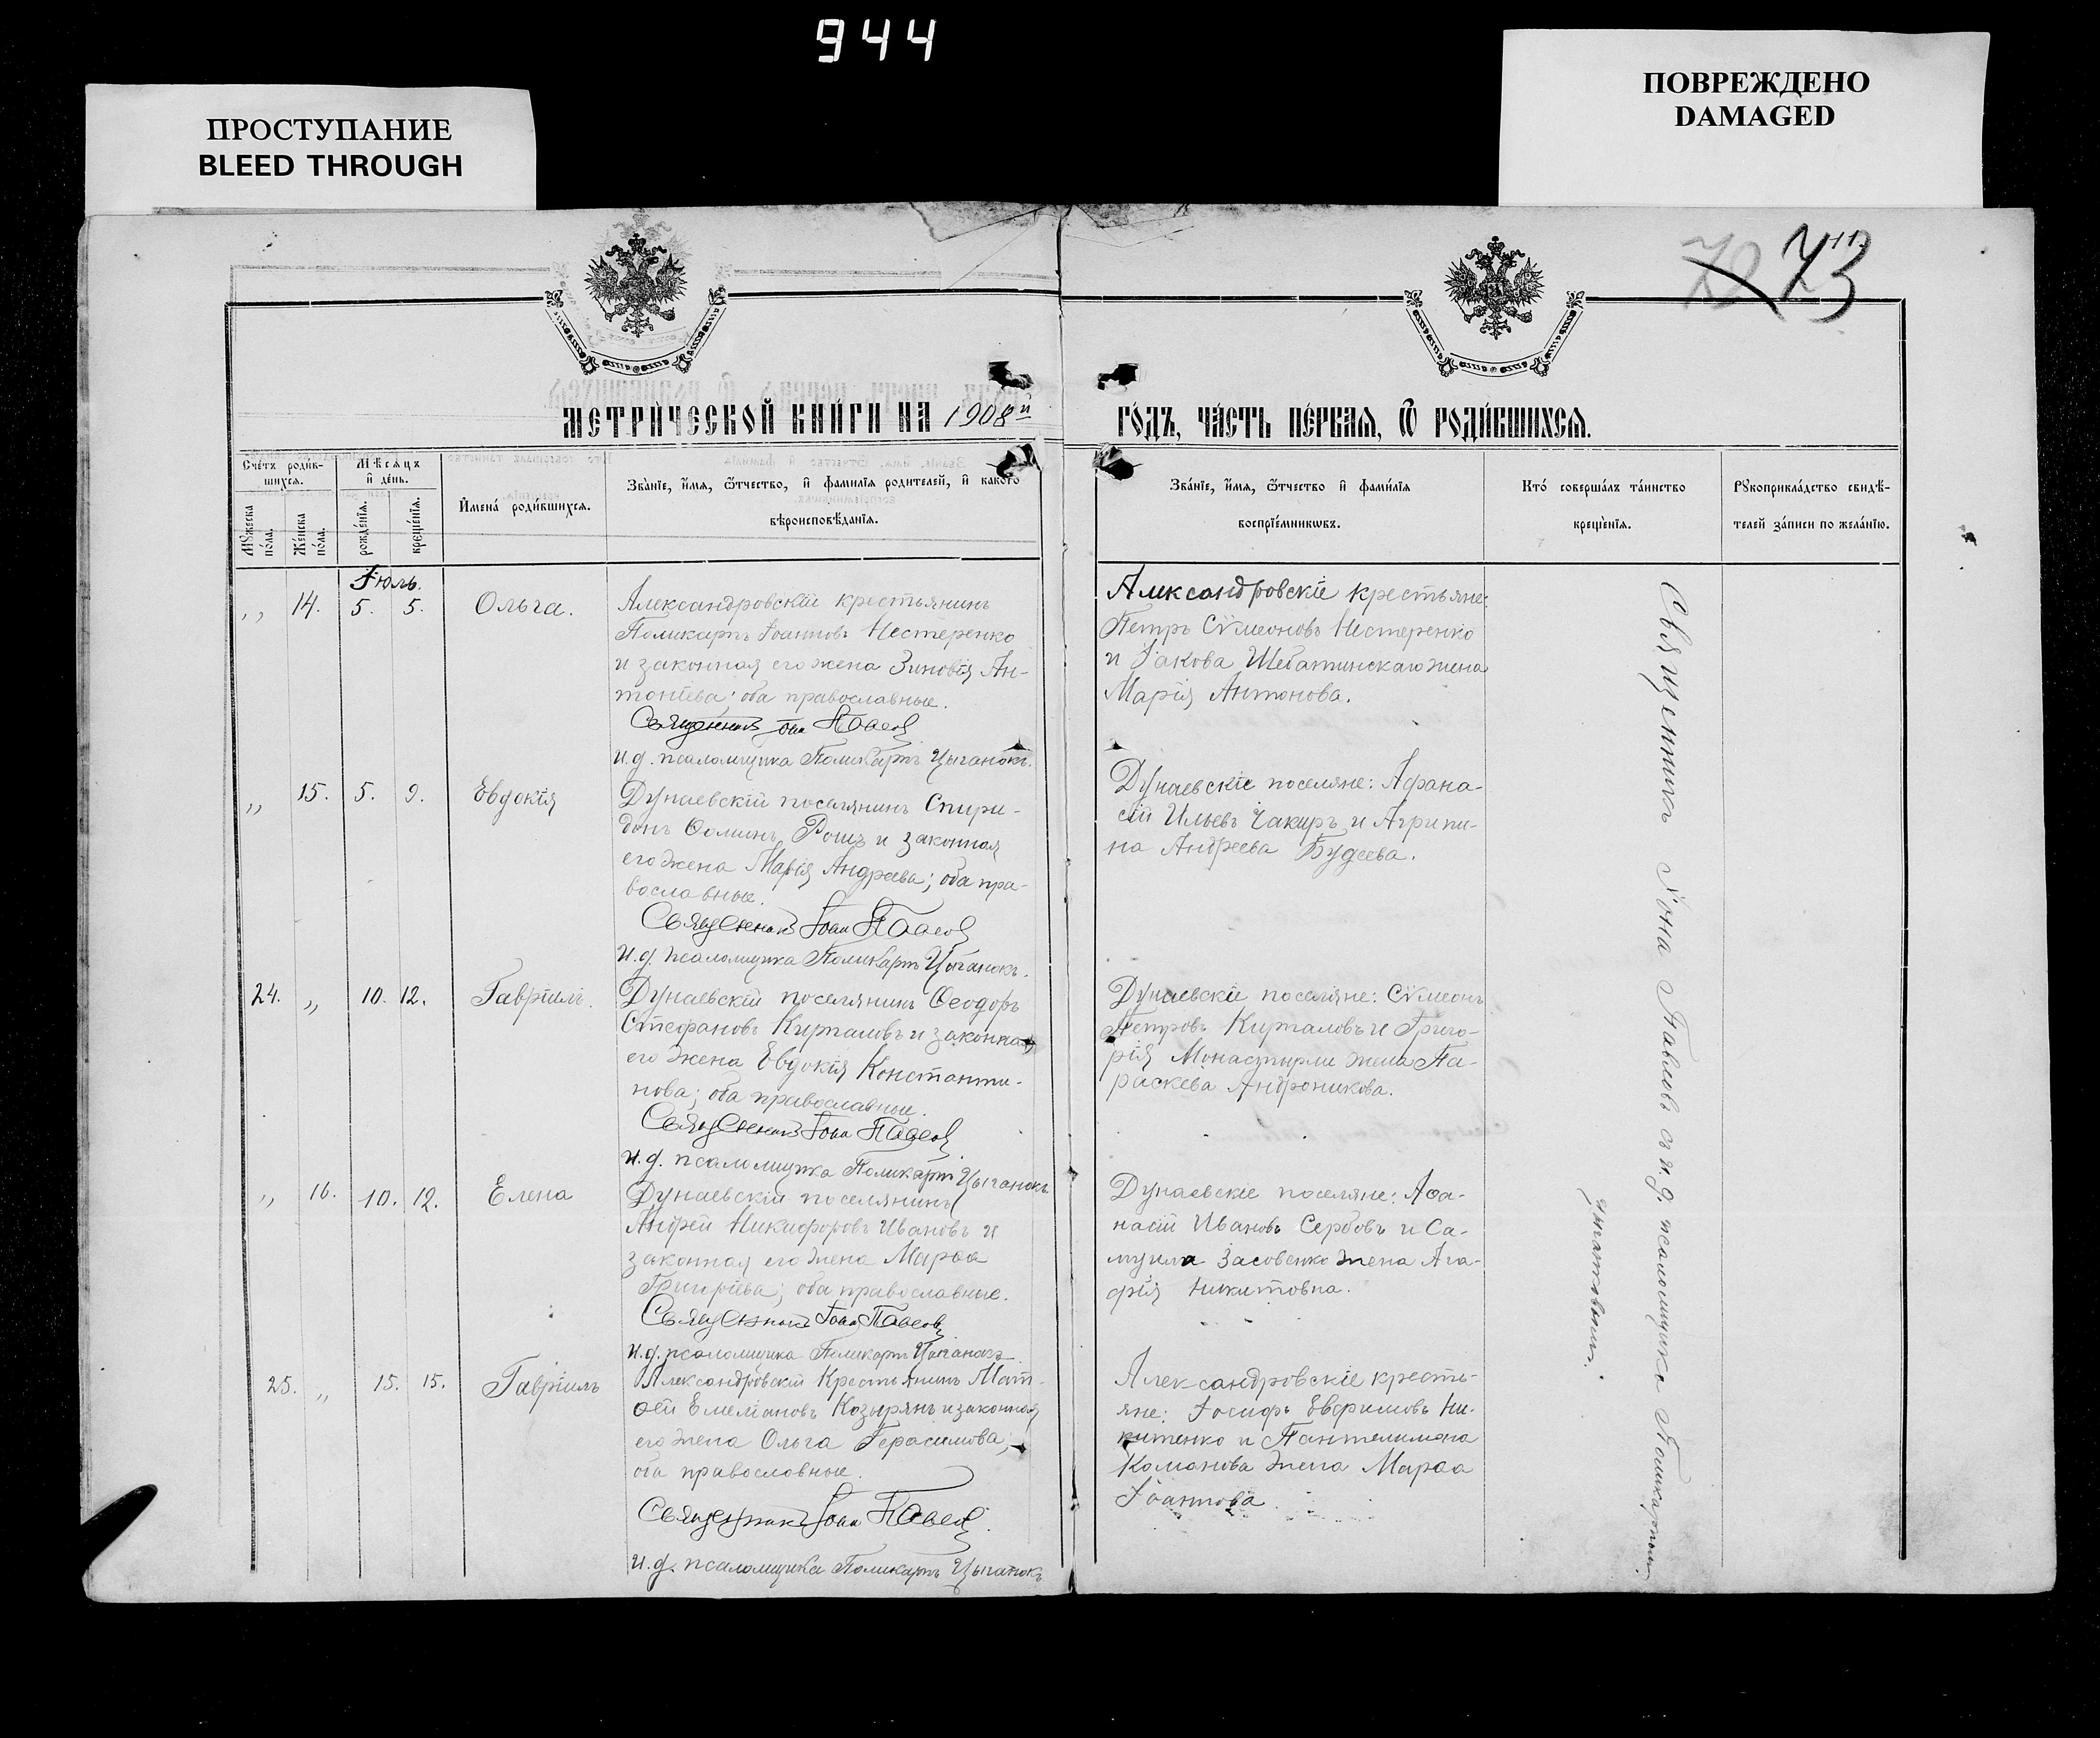 944
ПРОСТУПАНИЕ
BLEED THROUGH
ПОВРЕЖДЕНО
DAMAGED
72 73
МЕТРИ́ЧЕСКОЙ КНИ́ГИ НА 1908й
ГО́ДЪ, ЧА́СТЬ ПЕ́РВАЯ, Ѿ РОДИ́ВШИХСЯ.
Сче́тъ роди́в-
шихся.
Мѣ́сяцъ
и҆ де́нь.
Мꙋ́жеска
по́ла.
Же́нска
по́ла.
рожде́нїѧ.
креще́нїѧ.
И҆мена̀ роди́вшихся.
Зва́нїе, и҆́мѧ, ѻ҆́тчество, и҆ фамилїѧ родителей, и҆ какого
вѣроисповѣданїѧ.
Зва́нїе, и҆́мѧ, ѻ҆́тчество и҆ фами́лїѧ
воспрїе́мникѡвъ.
Кто́ соверша́лъ та́инство
креще́нїѧ.
Рꙋкоприкла́дство свидѣ-
телей за́писи по жела́нїю.
Іюль.
,, 14. 5. 5. Ольга.
Александровскій крестьянинъ
Поликарпъ Іоанновъ Нестеренко
и законная его жена Зиновія Ан-
тоніева; оба православные.
Священникъ Іона Павловъ
И. д. псаломщика Поликарпъ Цыганокъ.
Александровскіе крестьяне:
Петръ Сѵмеоновъ Нестеренко
и Іакова Шебатинскаго жена
Марія Антонова.
,, 15. 5. 9. Евдокія
Дунаевскій поселянинъ Спири-
донъ Ѳоминъ Рошъ и законная
его жена Марія Андреева; оба пра-
вославные.
Священникъ Іона Павловъ
И. д. псаломщика Поликарпъ Цыганокъ.
Дунаевскіе поселяне: Афана-
сій Ильевъ Чакиръ и Агрипи-
на Андреева Будеева.
24. ,, 10. 12. Гавріилъ.
Дунаевскій поселянинъ Ѳеодоръ
Стефановъ Курталовъ и законная
его жена Евдокія Константи-
нова; оба православные.
Священникъ Іона Павловъ
И. д. псаломщика Поликарпъ Цыганокъ
Дунаевскіе поселяне: Сѵмеонъ
Петровъ Курталовъ и Григо-
рія Монастырли жена Па-
раскева Андроникова.
,, 16. 10. 12. Елена
Дунаевскій поселянинъ
Андрей Никифоровъ Ивановъ и
законная его жена Марѳа
Григоріева; оба православные.
Священникъ Іона Павловъ
И. д. псаломщика Поликарпъ Цыганокъ
Дунаевскіе поселяне: Аѳа-
насій Ивановъ Сербовъ и Са-
муила Засовенко жена Ага-
фія Никитовна.
25. ,, 15. 15. Гавріилъ
Александровскій Крестьянинъ Мат-
ѳей Емеліановъ Козырянъ и законная
его жена Ольга Герасимова;
оба православные.
Священникъ Іона Павловъ.
И. д. псаломщика Поликарпъ Цыганокъ
Александровскіе кресть-
яне: Іосифъ Евфимовъ Ни-
китенко и Пантелимона
Команова жена Марѳа
Іоаннова.
Священникъ Іона Павловъ съ и. д. псаломщика Поликарпомъ
Цыганковымъ.